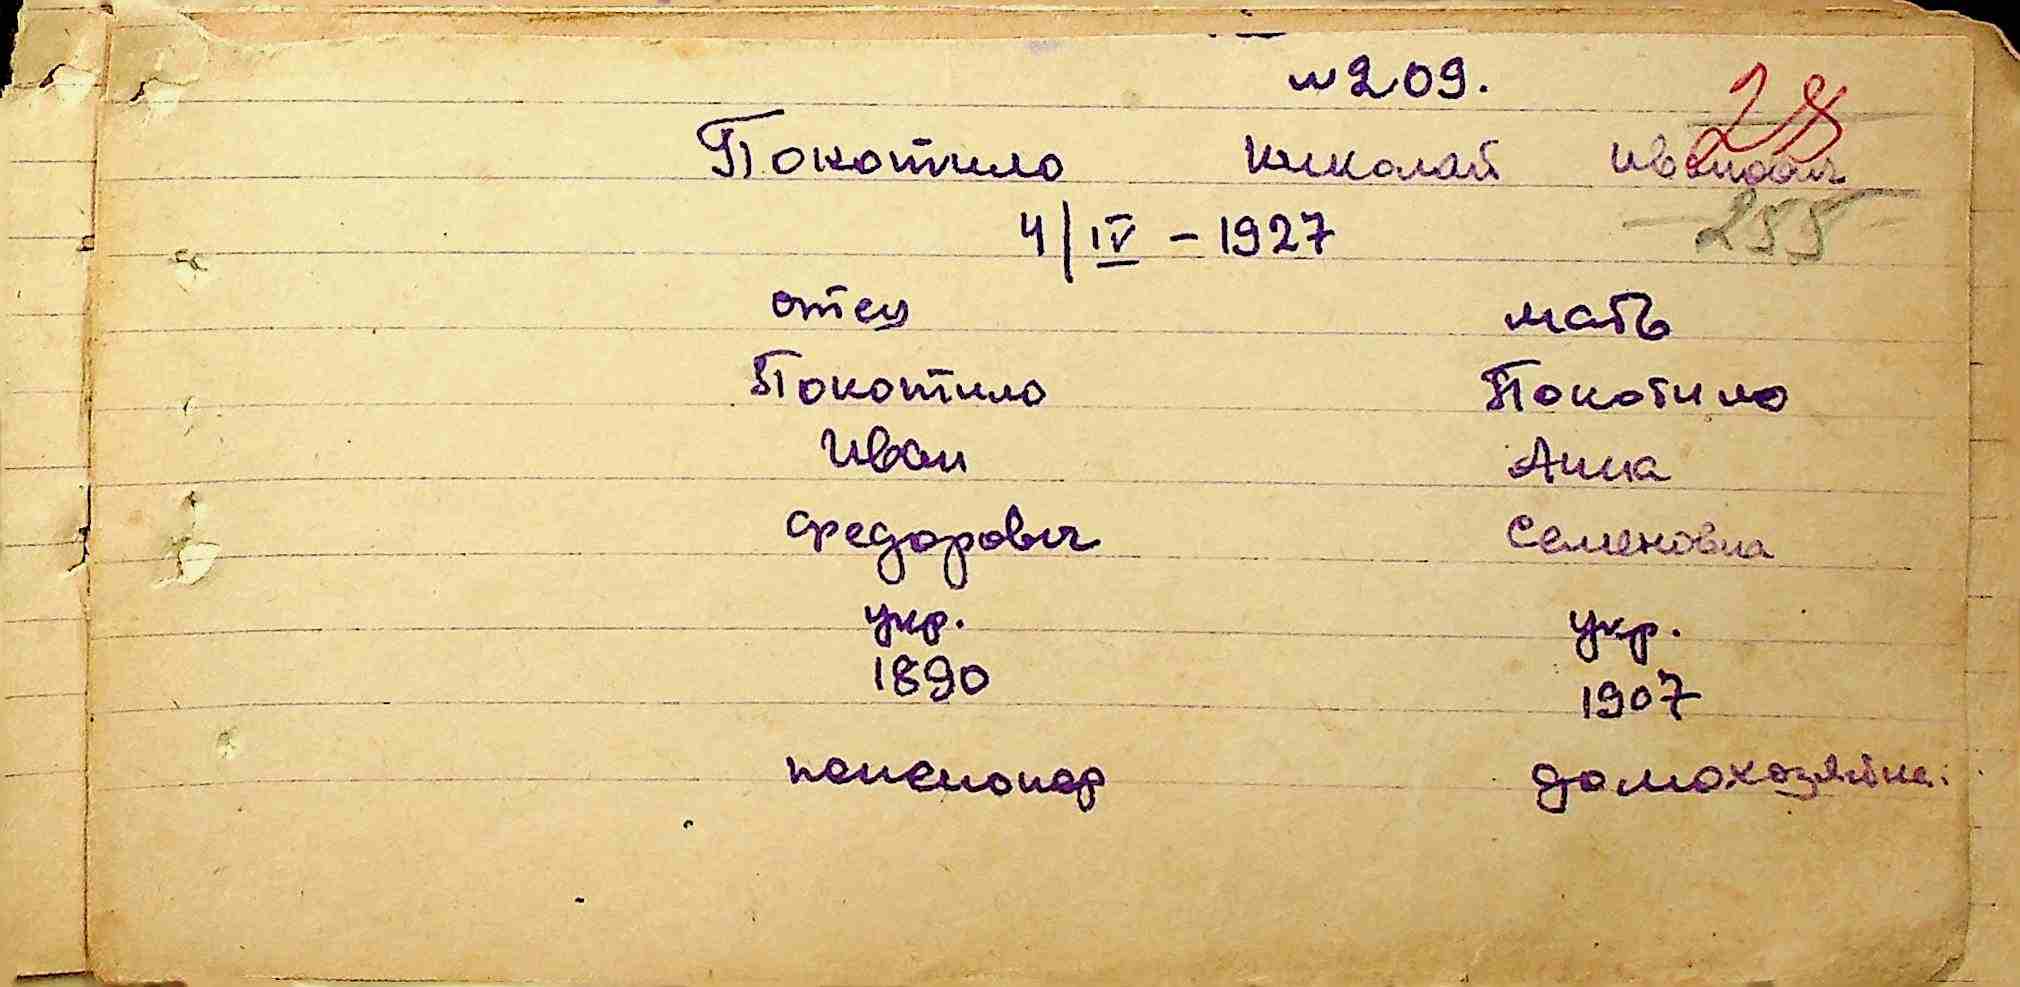 № 209.
28
Покотило Николай Иванович
4/IV - 1927
255
отец мать
Покотило Покотило
Иван Анна
Федорович Семеновна
укр. укр.
1890 1907
пенсионер домохозяйка.